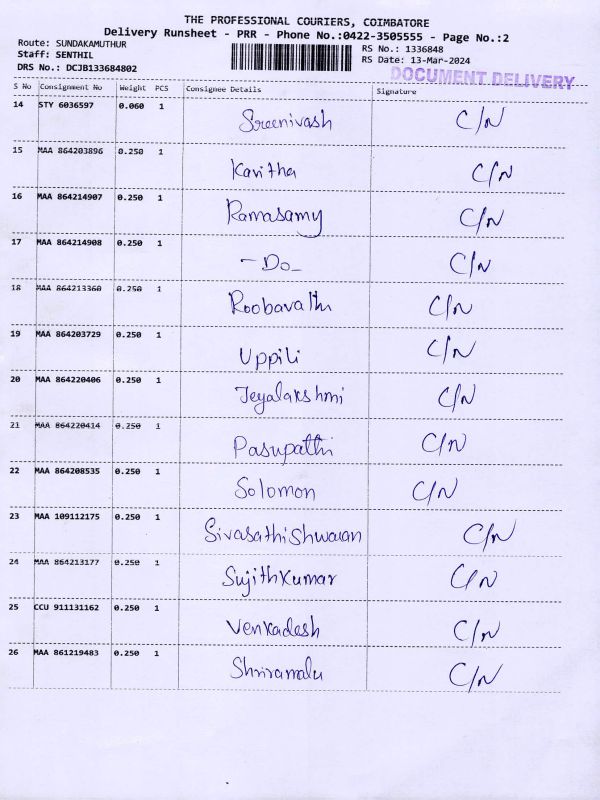 THE PROFESSIONAL COURIERS, COIMBATORE
Delivery Runsheet - PRR - Phone No.:0422-3505555 - Page No.:2
Route: SUNDAKAMUTHUR
Staff: SENTHIL
DRS No.: DCJB133684802
RS No.: 1336848
RS Date: 13-Mar-2024
DOCUMENT DELIVERY
S No Consignment No Weight PCS Consignee Details Signature
14 STY 6036597 0.060 1 Sreenivash C/N
15 MAA 864203896 0.250 1 Kavitha C/N
16 MAA 864214907 0.250 1 Ramasamy C/N
17 MAA 864214908 0.250 1 -Do- C/N
18 MAA 864213360 0.250 1 Roobavathi C/N
19 MAA 864203729 0.250 1 Uppili C/N
20 MAA 864220406 0.250 1 Jeyalakshmi C/N
21 MAA 864220414 0.250 1 Pasupathi C/N
22 MAA 864208535 0.250 1 Solomon C/N
23 MAA 109112175 0.250 1 SivasathiShwaran C/N
24 MAA 864213177 0.250 1 Sujithkumar C/N
25 CCU 911131162 0.250 1 Venkadesh C/N
26 MAA 861219483 0.250 1 Shriramalu C/N